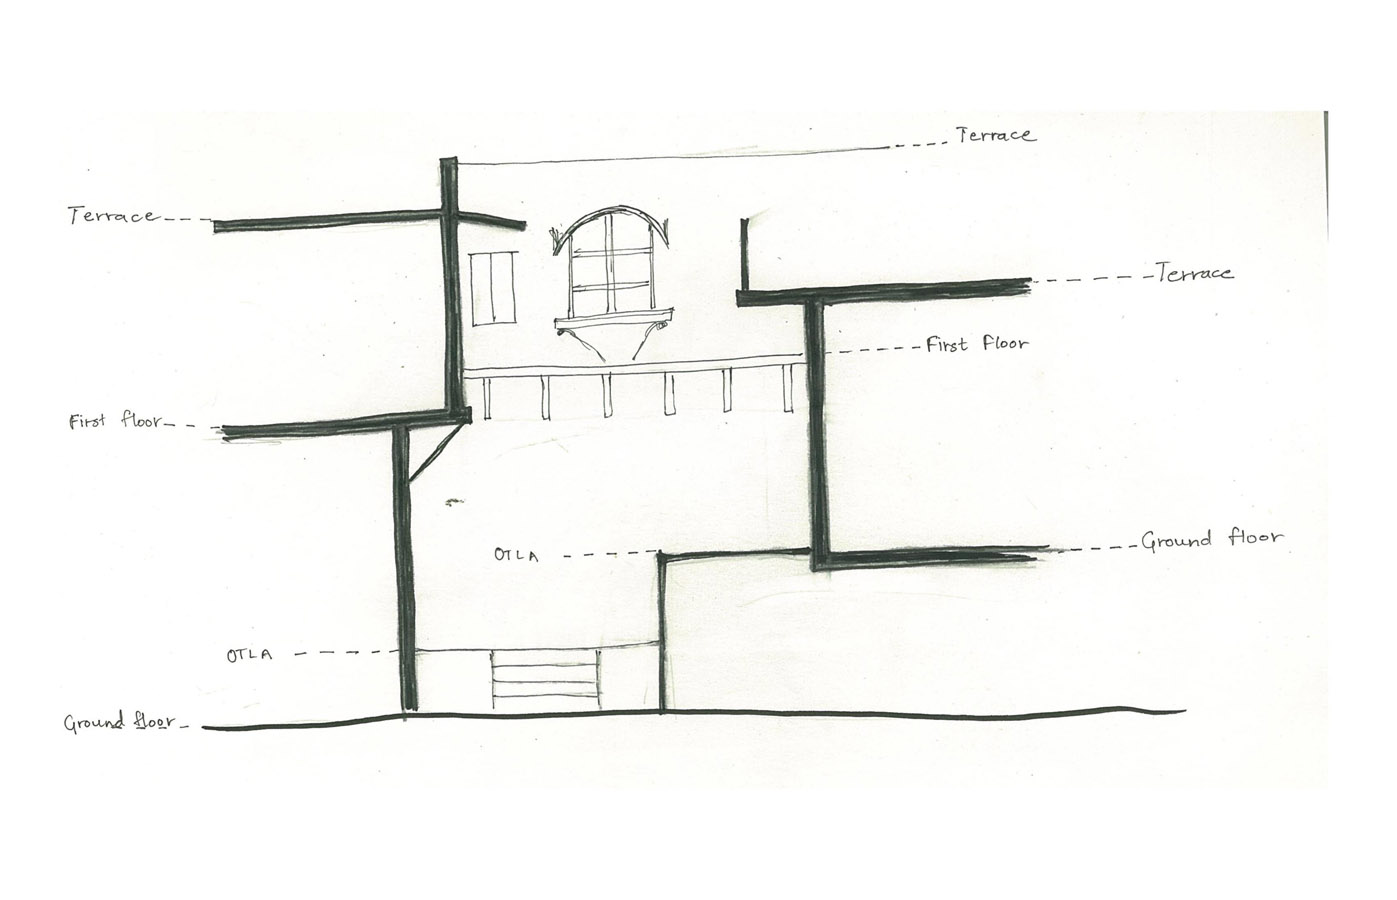 Terrace
Terrace
Terrace
First floor
First floor
OTLA
Ground floor
OTLA
Ground floor